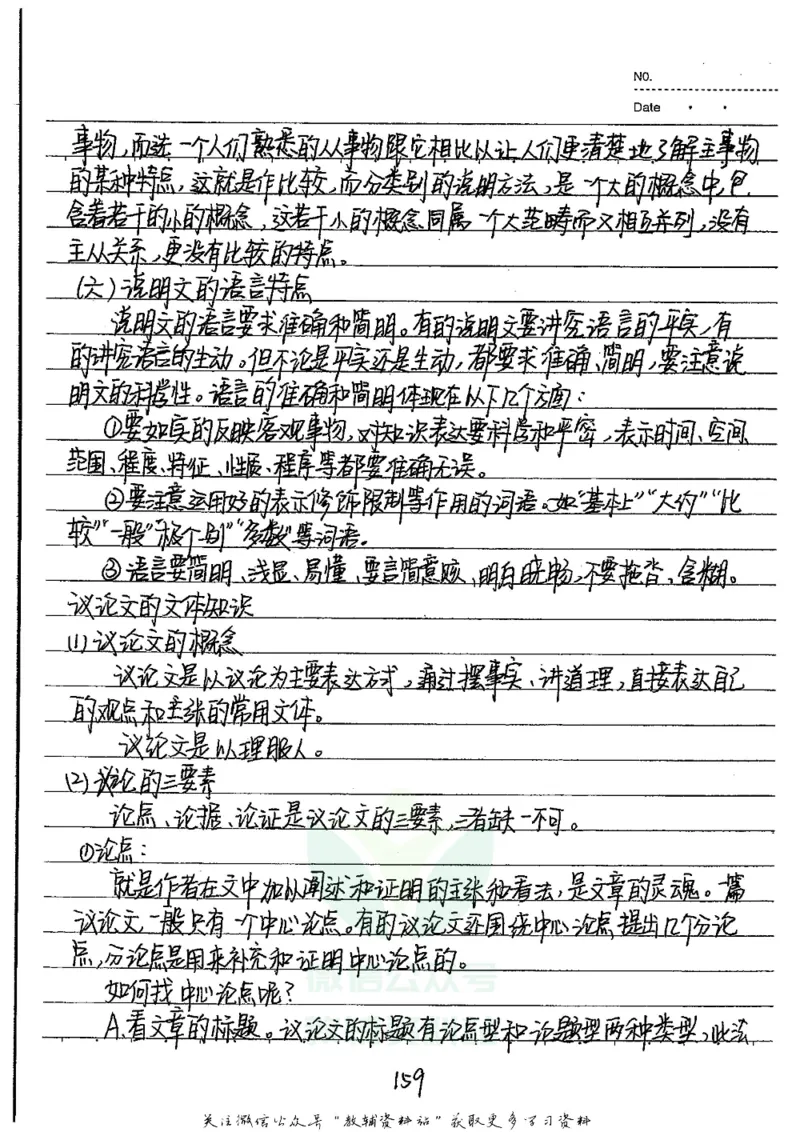 NO.
Date
事物,而选一个人们熟悉的从事物跟它相比以让人们更清楚地了解主事物
的某种特点,这就是作比较,而分类别的说明方法,是一个大的概念中,包
含着若干的小的概念,这若干小的概念同属一个大范畴而又相互并列,没有
主从关系,更没有比较的特点。
(六)说明文的语言特点
说明文的语言要求准确和简明。有的说明文要讲究语言的平实,有
的讲究语言的生动。但不论是平实还是生动,都要求准确、简明,要注意说
明文的科学性。语言的准确和简明体现在以下几个方面:
①要如实的反映客观事物,对知识表达要科学和严密,表示时间、空间、
范围、程度、特征、性质、程序等都要准确无误。
②要注意运用好的表示修饰限制等作用的词语。如“基本上”“大约”“比
较”“一般”“极个别”“多数”等词语。
③语言要简明、浅显、易懂、要言简意赅、明白晓畅,不要拖沓、含糊。
议论文的文体知识
(1)议论文的概念
议论文是以议论为主要表达方式,通过摆事实、讲道理,直接表达自己
的观点和主张的常用文体。
议论文是以理服人。
(2)议论的三要素
论点、论据、论证是议论文的三要素,三者缺一不可。
①论点:
就是作者在文中加以阐述和证明的主张和看法,是文章的灵魂。一篇
议论文,一般只有一个中心论点。有的议论文还围绕中心论点提出几个分论
点,分论点是用来补充和证明中心论点的。
微信公众号
如何找中心论点呢?
A.看文章的标题。议论文的标题有论点型和论题型两种类型,此法
159
关注微信公众号“教辅资料站”获取更多学习资料